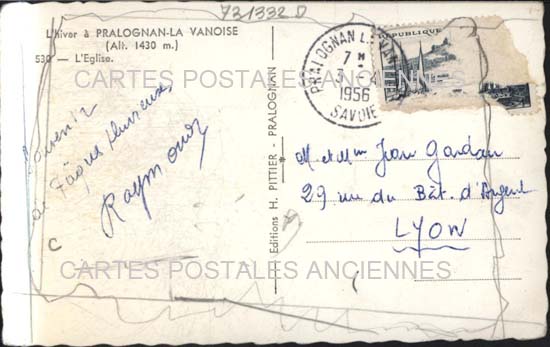 731332 D
L'hiver à PRALOGNAN-LA VANOISE
(Alt. 1430 m.)
530 — L'Eglise.
Souvenir
de Pâques pluvieuses
Raymonde
C
Editions H. PITTIER - PRALOGNAN
PRALOGNAN LA VAN
7 H
3 - 4
1956
SAVOIE
REPUBLIQUE
M. et Mme Jean Gardan
29 rue du Bât. d'Argent
LYON
CARTES POSTALES ANCIENNES
CARTES POSTALES ANCIENNES